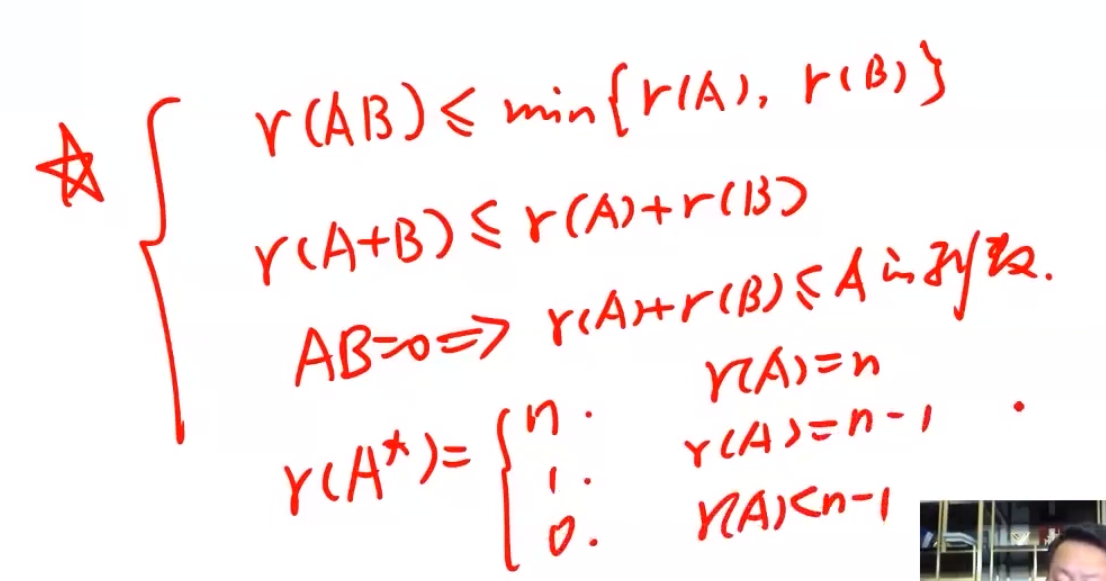 ☆ r(AB) ≤ min{r(A), r(B)}
r(A+B) ≤ r(A)+r(B)
AB=0 ⇒ r(A)+r(B) ≤ A的列数.
r(A*) = { n. r(A)=n
1. r(A)=n-1
0. r(A)<n-1